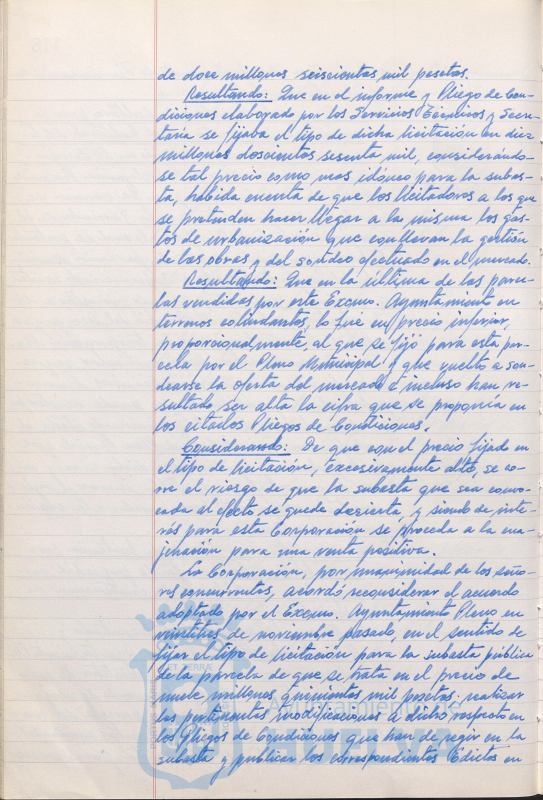 de doce millones seiscientas mil pesetas.
Resultando: Que en el informe y Pliego de Con-
diciones elaborado por los Servicios Técnicos y Secre-
taría se fijaba el tipo de dicha licitación en diez
millones doscientos sesenta mil, considerándo-
se tal precio como mas idóneo para la subas-
ta, habida cuenta de que los licitadores a los que
se pretenden hacer llegar a la misma los gas-
tos de urbanización que conllevan la gestión
de las obras y del sondeo efectuado en el mercado.
Resultando: Que en la última de las parce-
las vendidas por este Excmo. Ayuntamiento en
terrenos colindantes, lo fue en precio inferior,
proporcionalmente, al que se fijó para esta par-
cela por el Pleno Municipal y que vuelto a son-
dearse la oferta del mercado e incluso han re-
sultado ser alta la cifra que se proponía en
los citados Pliegos de Condiciones.
Considerando: De que con el precio fijado en
el tipo de licitación, excesivamente alto, se co-
rre el riesgo de que la subasta que sea convo-
cada al efecto se quede desierta, y siendo de inte-
rés para esta Corporación se proceda a la ena-
jenación para una venta positiva.
La Corporación, por unanimidad de los seño-
res concurrentes, acordó reconsiderar el acuerdo
adoptado por el Excmo. Ayuntamiento Pleno en
veintitres de noviembre pasado, en el sentido de
fijar el tipo de licitación para la subasta pública
de la parcela de que se trata en el precio de
nueve millones quinientas mil pesetas: realizar
las pertinentes modificaciones a dicho respecto en
los Pliegos de Condiciones que han de regir en la
subasta y publicar los correspondientes Edictos en